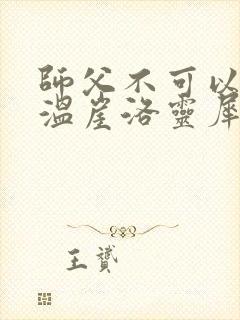 師父不可以
溫崖洛靈犀
王贇